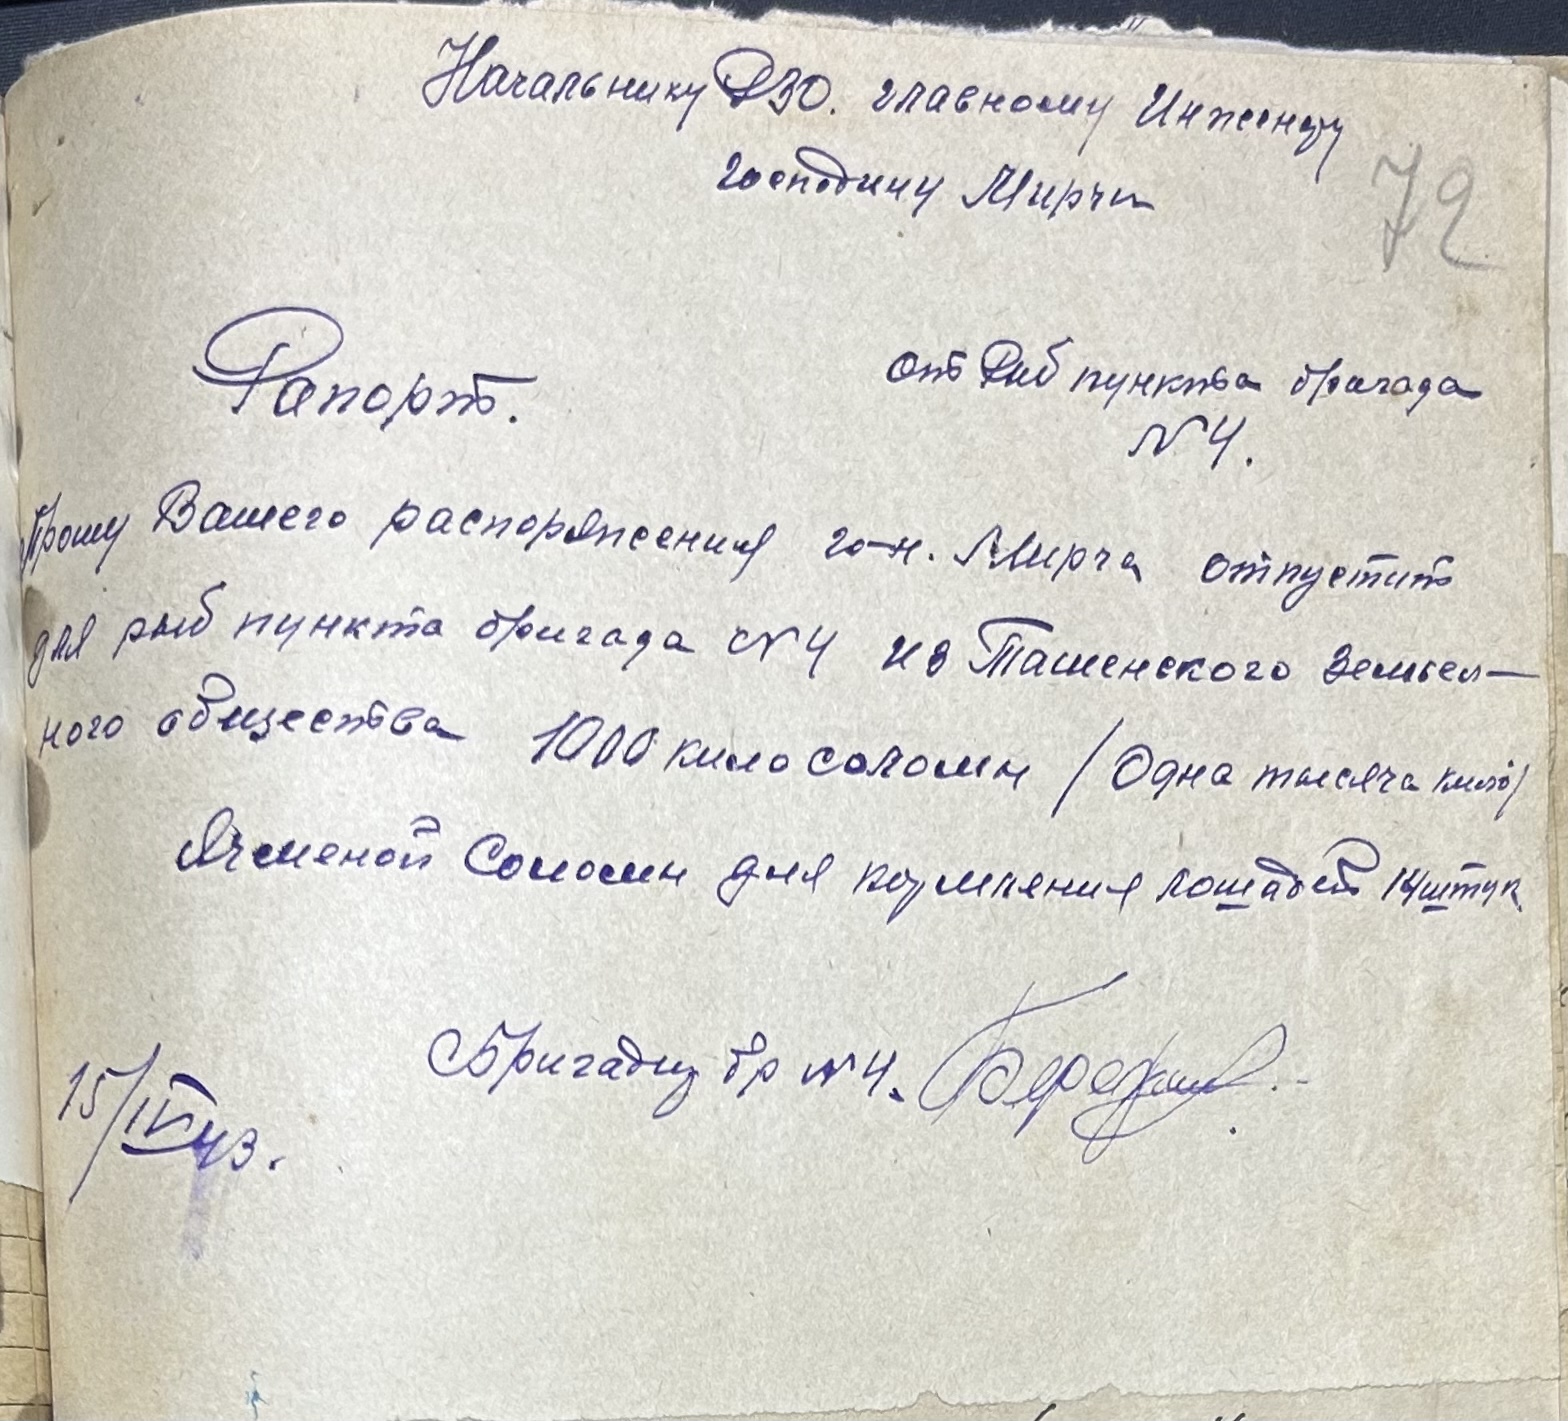 Начальнику РЗО. главному Инженеру
господину Мирчи
72
Рапорт.
от Рыб пункта бригада
№ 4.
Прошу Вашего распоряжения го-н. Мирча отпустить
для рыб пункта бригада № 4 из Ташенского земьел-
ного общества 1000 кило соломы / Одна тысяча кило/
Ячменой Соломы для кормления лошадей 14 штук.
Бригадир бр № 4.
15/IV 43.